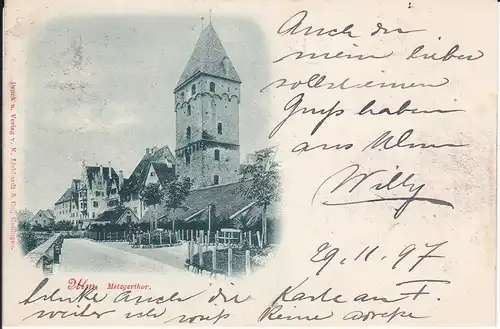 Auch du
mein lieber
sollst einen
Gruß haben
aus Ulm
Willy
29.11.97
Ulm. Metzgerthor.
schicke auch die Karte an F.
weiter ich weiß keine adresse
Druck u. Verlag v.